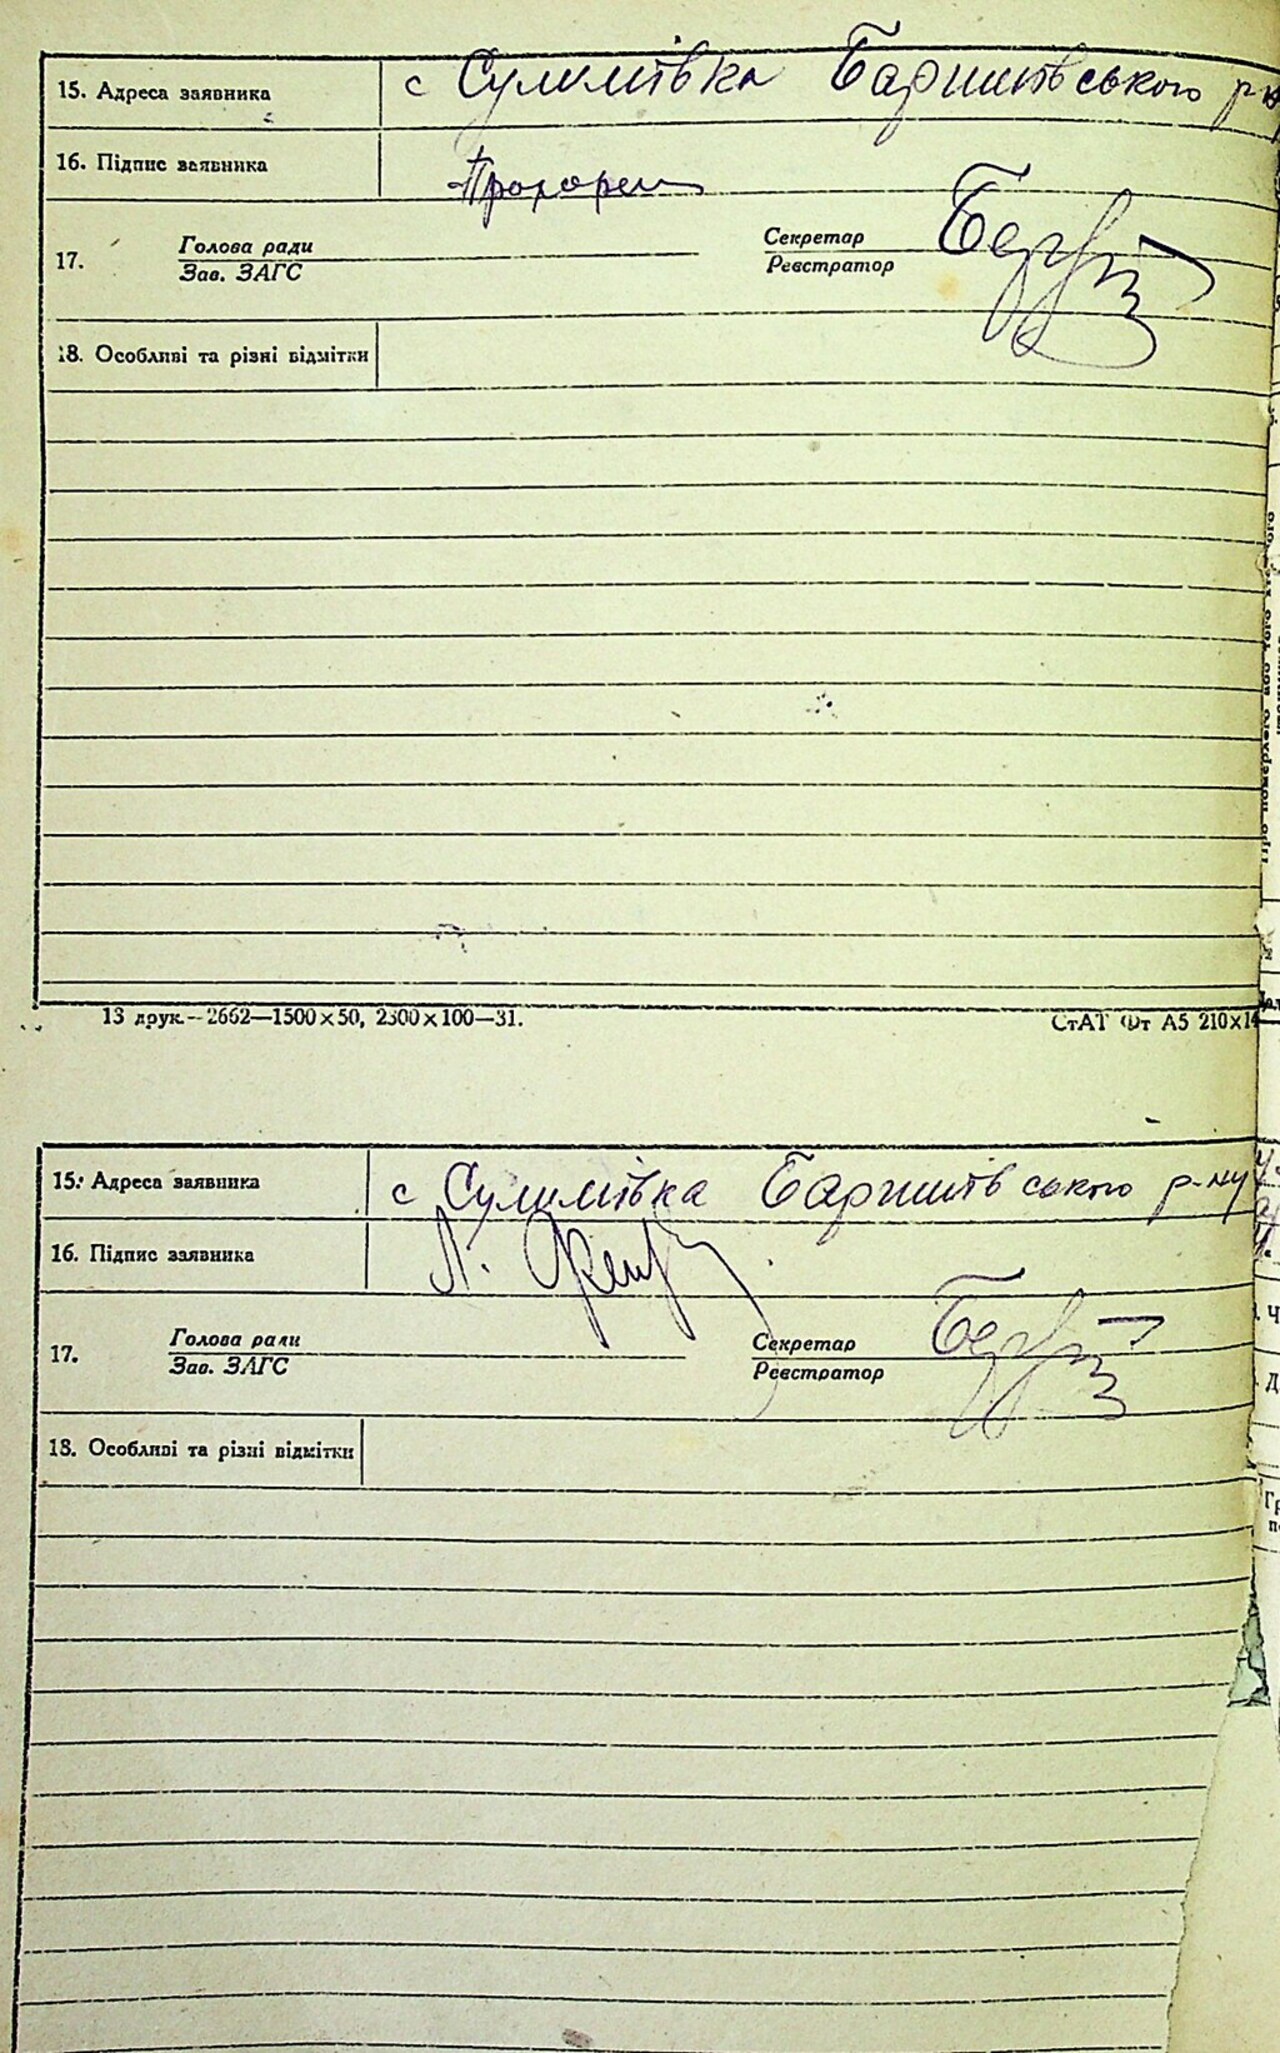 15. Адреса заявника с Сулимівка Баришівського р-ну
16. Підпис заявника Прохорен
17. Голова ради Секретар
Зав. ЗАГС Реєстратор
18. Особливі та різні відмітки
13 друк.—2662—1500×50, 2300×100—31. СтАТ Фт А5 210×14
15. Адреса заявника с Сулимівка Баришівського р-ну
16. Підпис заявника Л.
17. Голова ради Секретар
Зав. ЗАГС Реєстратор
18. Особливі та різні відмітки